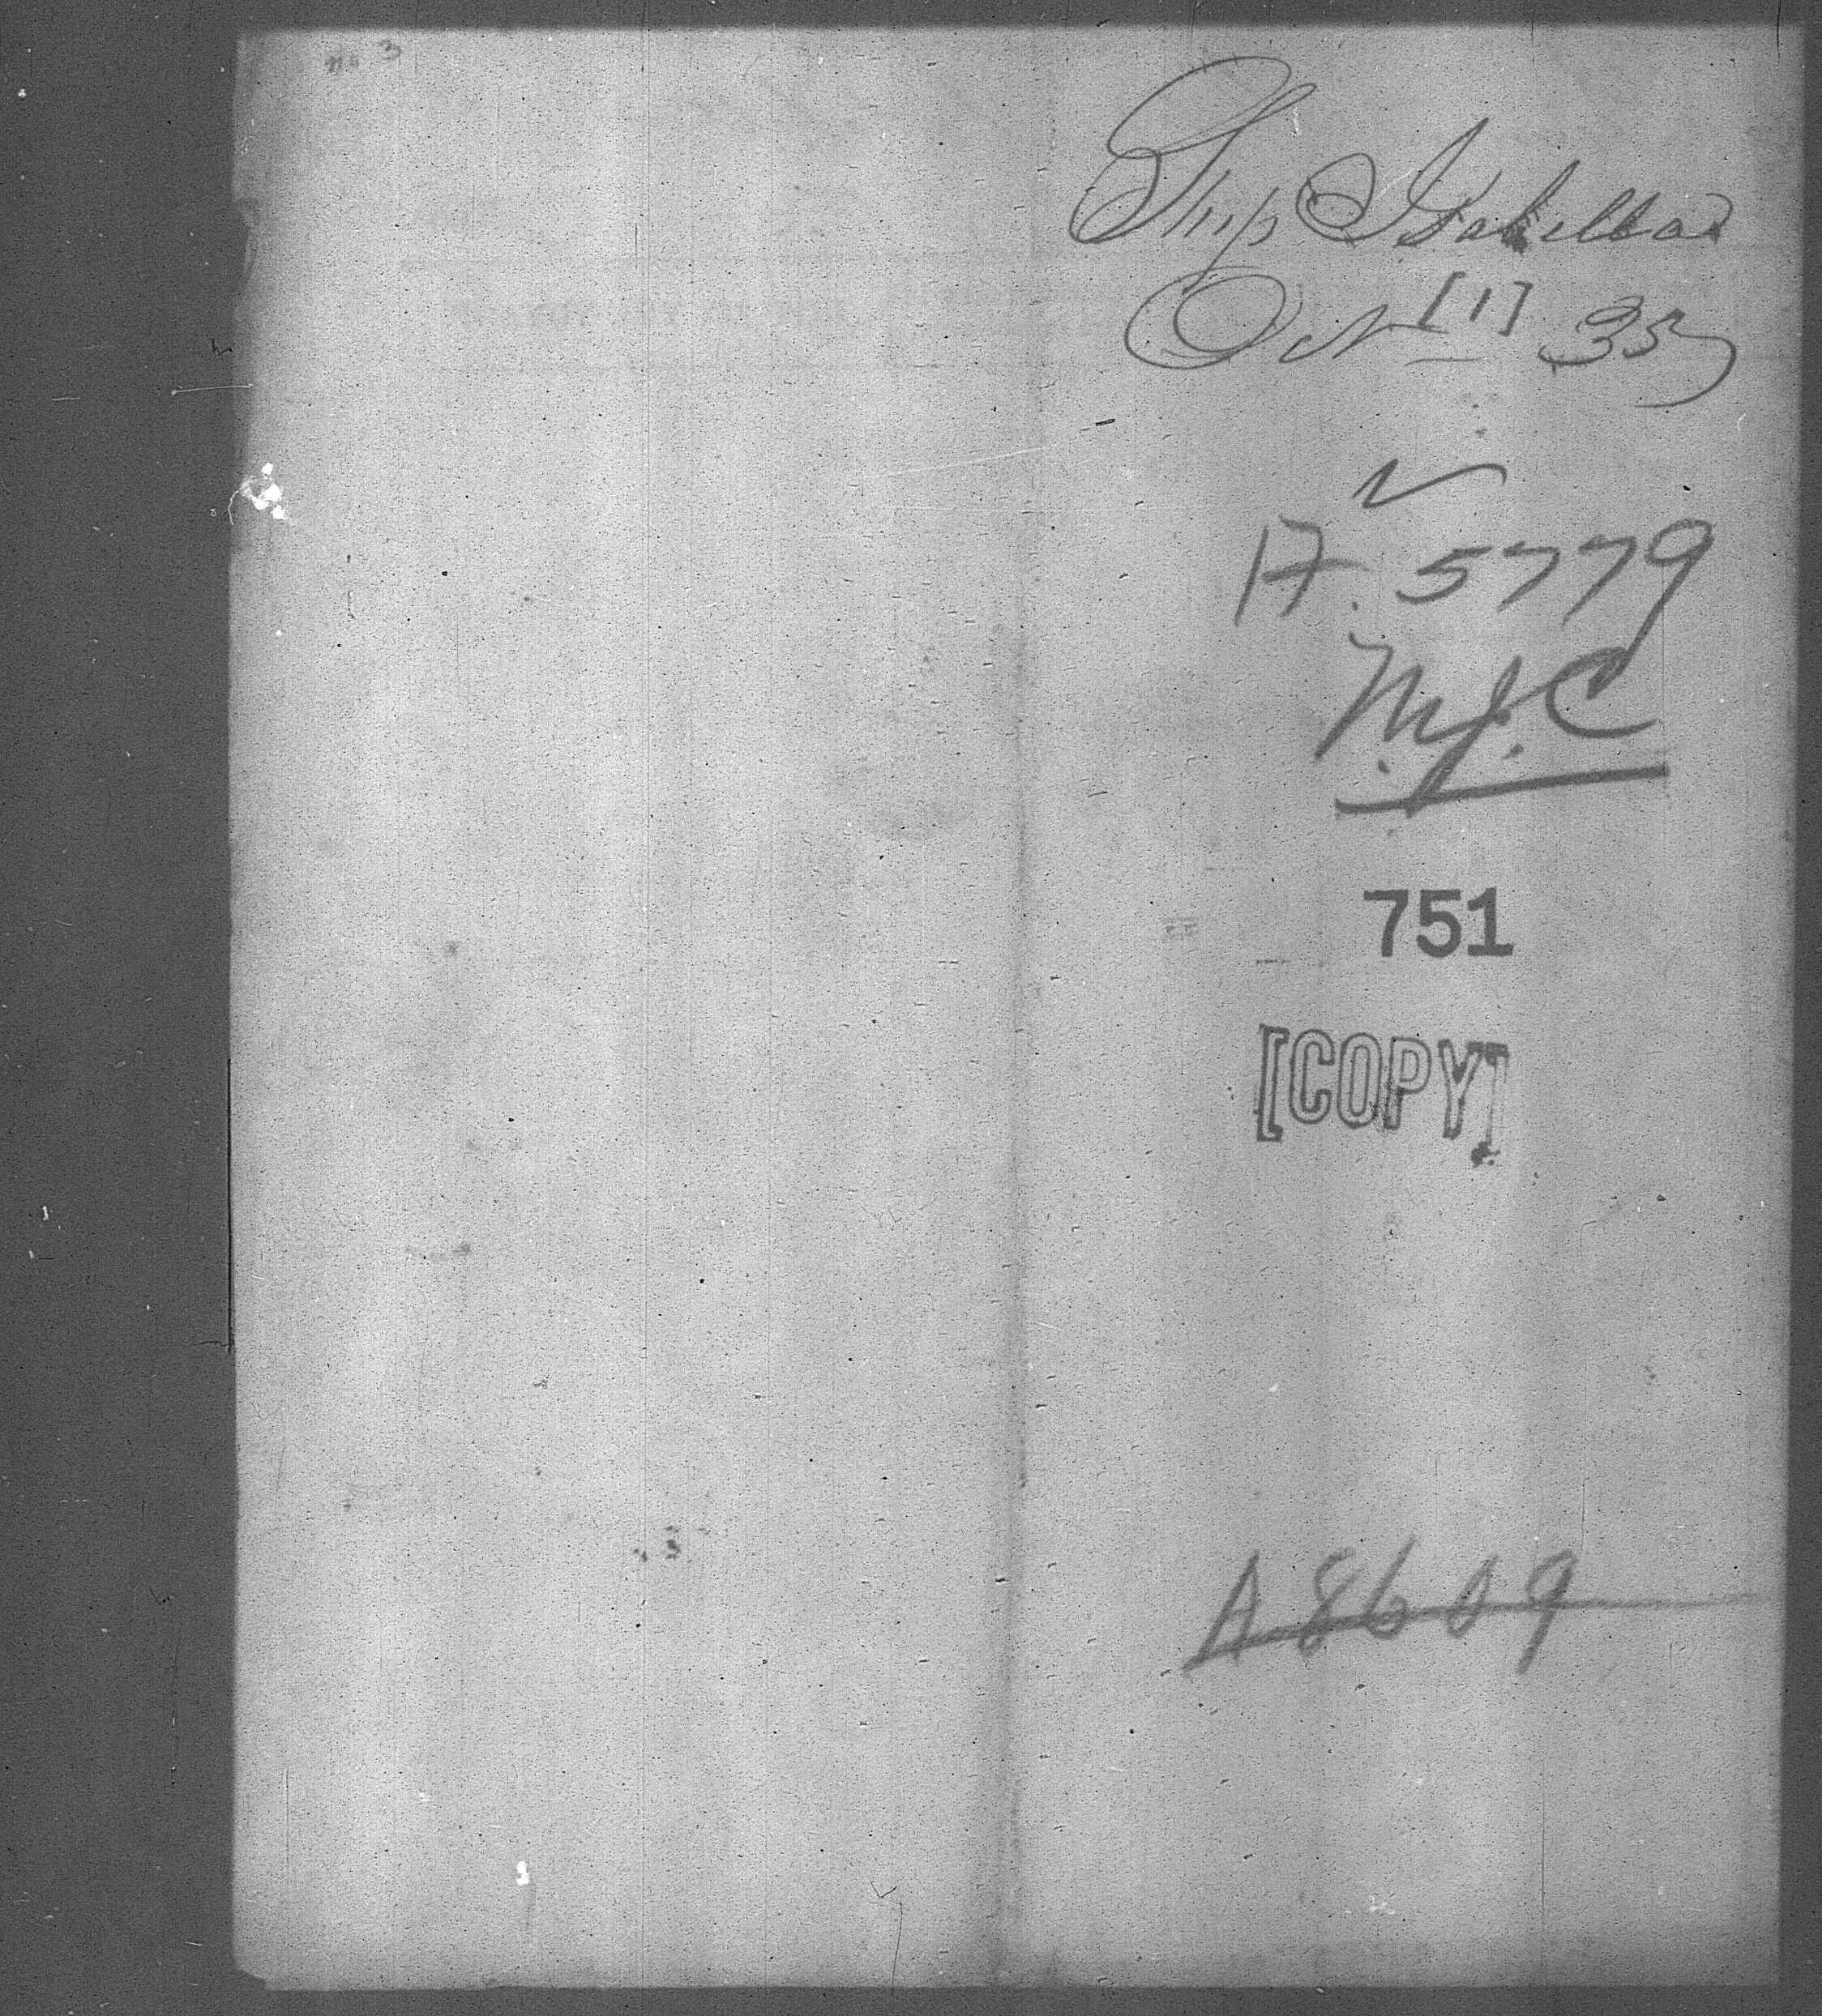 no 3
Ship Isabellas
Oct [1] 35
A. 5779
M.J.C
751
[COPY]
A 8609